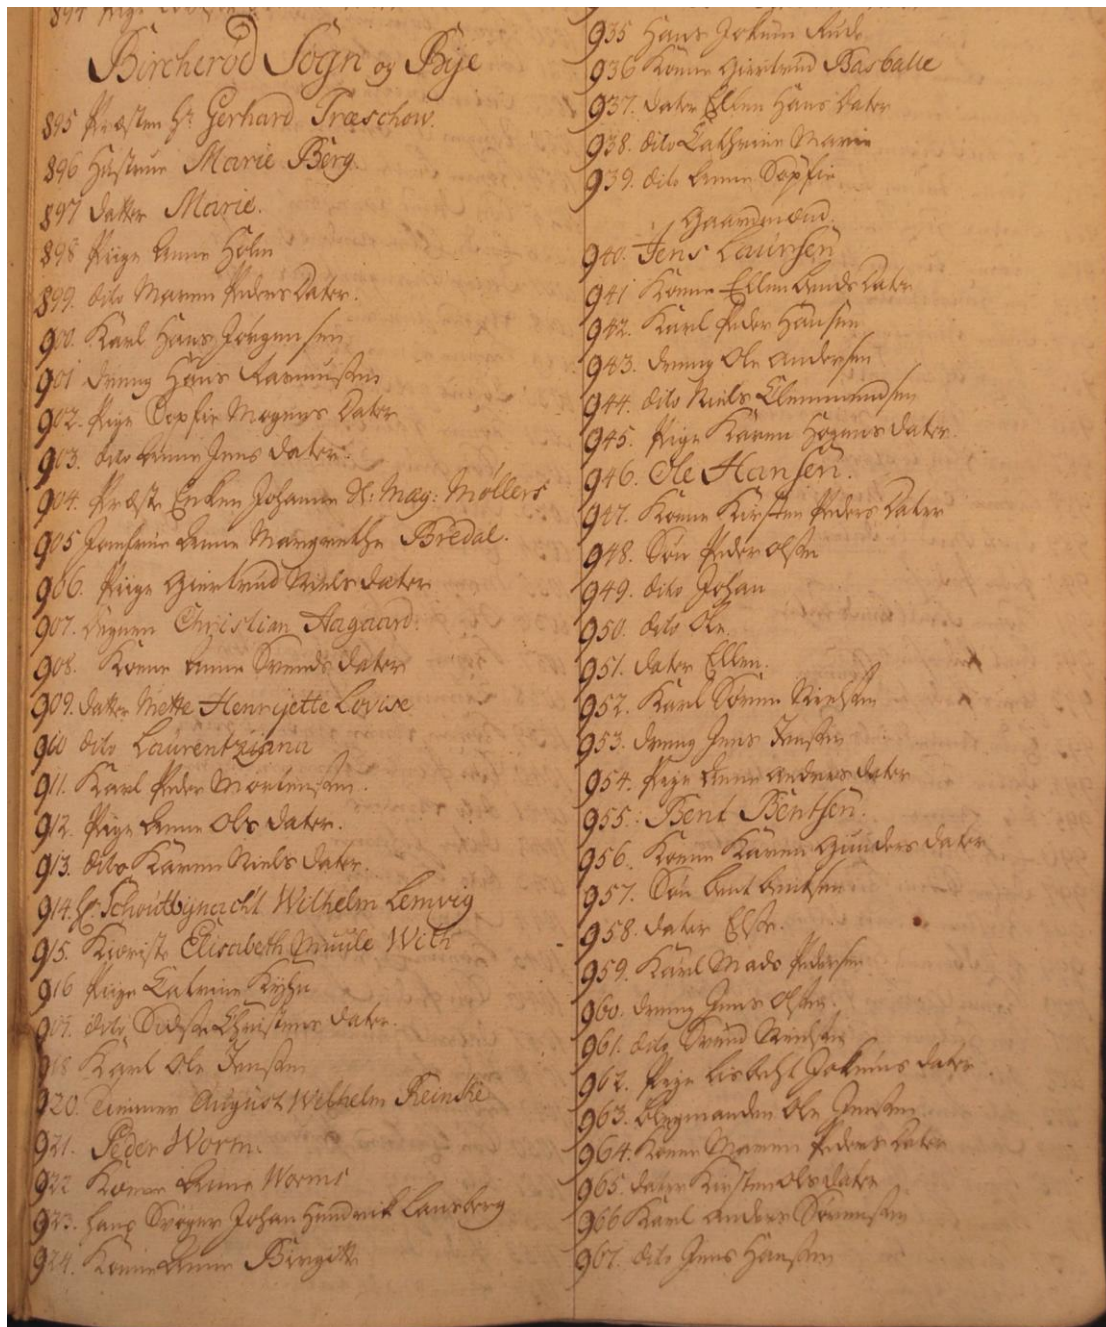 894
Bircheröd Sogn og Bÿe
895 Præsten Hr Gerhard Træschow.
896 Hustrue Marie Berg.
897 Datter Marie.
898 Piige Anne Holm
899. dito Maren Peders Dater.
900. Karl Hans Jörgensen
901 dreng Hans Rasmussen
902. Pige Sophie Mogens Dater
903. dito Anne Jens Dater.
904. Præste Enken Johanne Sl: Mag: Møllers
905 Jomfrue Anne Margrethe Bredal.
906. Piige Giertrud Niels Dater
907. Degnen Christian Aagaard.
908. Konne Anne Svends Dater
909. Datter Mette Henrijette Lovise
910 dito Laurentziana
911. Karl Peder Mortensen.
912. Pige Anne Ols Dater.
913. dito Karen Niels Dater.
914. Hr. Schoutbynacht Wilhelm Lemvig
915. Kieriste Elisabeth Muule With
916 Piige Catrine
907. dito Christens Dater.
918 Karl Ole Jensen
920. August Wilhelm Reincke
921. Peder Worm.
922 Konne Anne Worms
923. hans Svoger Johan Hendrik Lansberg
924. Konne Anne Birgitte
935 Hans Jokum Rude
936 Konne Giertrud Basballe
937. Dater Ellen Hans Dater
938. dito Cathrine Marie
939. dito Anne Sophie
Gaardmænd.
940. Jens Laursen
941 Konne Ellen Bends Dater
942. Karl Peder Hansen
943. dreng Ole Andersen
944. dito Niels Clemmendsen
945. Pige Karen Hagens Dater.
946. Ole Hansen.
947. Konne Kirsten Peders Dater
948. Sön Peder Olsen
949. dito Johan
950. dito Ole
951. Dater Ellen.
952. Karl Sören Nielsen
953. dreng Jens Jensen
954. Pige Anne Anders Dater
955. Bent Bentsen.
956. Konne Karen Gunders Dater
957. Sön Bent Bentsen
958. Dater Else.
959. Karl Mads Pedersen
960. dreng Jens Olsen.
961. dito Svend Nielsen
962. Pige Lisbeht Jokums Dater.
963. Ole Jensen
964. Konne Maren Peders Dater
965. Dater Kirsten Olsdater
966 Karl Anders Sörensen
967. dito Jens Hansen